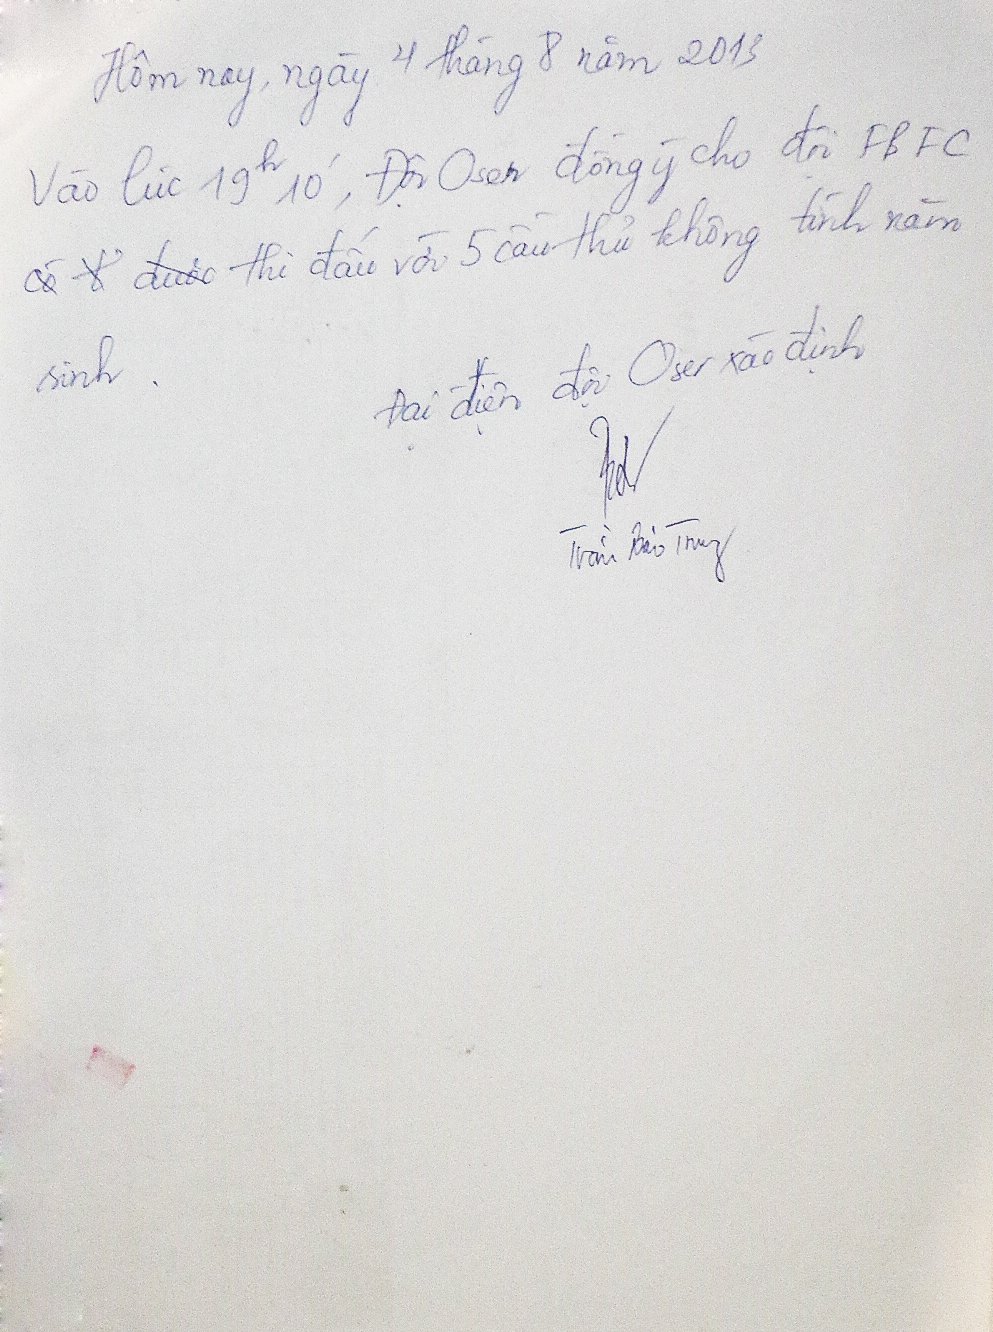 Hôm nay, ngày 4 tháng 8 năm 2013
Vào lúc 19h10', Đội Oser đồng ý cho đội FBFC
có được thi đấu với 5 cầu thủ không tính năm
sinh.
Đại diện đội Oser xác định
Trần Bảo Trung